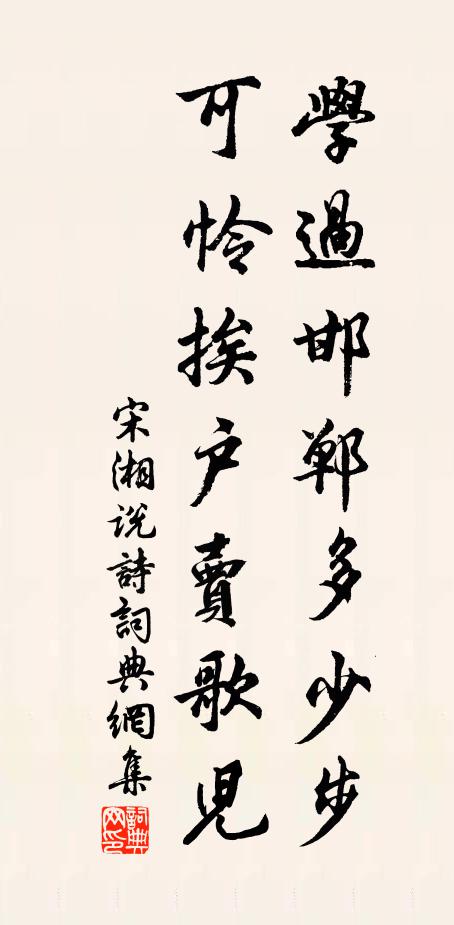 學過邯鄲多少步
可怜挨户賣歌兒
宋湘説詩詞典網集
詞典網印